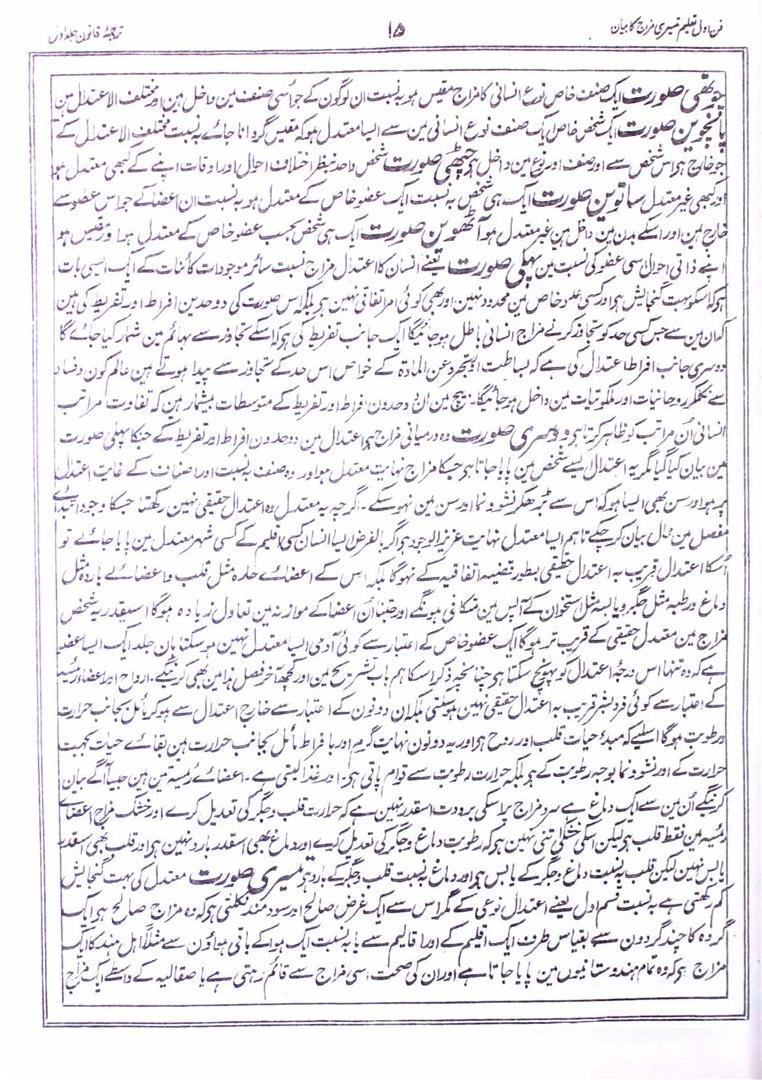 فن اول تعلیم تیسری مزاج کا بیان ۱۵ ترجمۂ قانون جلد اول
چوتھی صورت ایک صنف خاص نوع انسانی کا مزاج مقیس ہو بہ نسبت ان لوگون کے جو اسی صنف مین داخل ہین اور مختلف الاعتدال ہین
پانچوین صورت ایک شخص خاص ایک صنف نوع انسانی مین سے ایسا معتدل ہو کہ مقیس گردانا جائے بہ نسبت مختلف الاعتدال کے
جو خارج ہو اس شخص سے اور صنف اور نوع مین داخل ہو چھٹی صورت شخص واحد بنظر اختلاف احوال اور اوقات اپنے کے کبھی معتدل ہو
اور کبھی غیر معتدل ساتوین صورت ایک ہی شخص بہ نسبت ایک عضو خاص کے معتدل ہو بہ نسبت ان اعضا کے جو اس عضو سے
خارج ہین اور اسکے بدن مین داخل ہین غیر معتدل ہو آٹھوین صورت ایک ہی شخص بحسب عضو خاص کے معتدل ہو اور مقیس ہو
اپنے ذاتی احوال اسی عضو کی نسبت مین پہلی صورت یعنے انسان کا اعتدال مزاج نسبت سائر موجودات کائنات کے ایک ایسی بات
ہو کہ اسکو بہت گنجایش ہو اور کسی حد خاص مین محدود نہین اور بھی کوئی امر اتفاقی نہین ہو بلکہ اس صورت کی دو حدین افراط اور تفریط کی ہین
کہ ان مین سے جس کسی حد کو تجاوز کرنے مزاج انسانی باطل ہو جائیگا ایک جانب تفریط کی ہو کہ اسکے تجاوز سے بہائم مین شمار کیا جائے گا
دوسری جانب افراط اعتدال کی ہے کہ بساطت اور تجرد عن المادۃ کے خواص اس حد کے تجاوز سے پیدا ہوتے ہین عالم کون و فساد
سے نکلکر روحانیات اور ملکوتیات مین داخل ہو جائیگا۔ بیچ مین ان دو حدون افراط اور تفریط کے متوسطات بیشمار ہین کہ تفاوت مراتب
انسانی ان مراتب کو ظاہر کرتا ہو دوسری صورت وہ درمیانی مزاج ہو اعتدال مین دو حدون افراط اور تفریط کے جنکا پہلی صورت
مین بیان کیا گیا مگر یہ اعتدال ایسے شخص مین پایا جاتا ہو جسکا مزاج نہایت معتدل ہو اور وہ صنف بہ نسبت اور اصناف کے غایت اعتدال
پر ہو اور سن بھی ایسا ہو کہ اس سے بڑھکر نشو و نما اور سن مین نہو سکے۔ اگرچہ یہ معتدل وہ اعتدال حقیقی نہین رکھتا جسکا وجود ابتدائے
مفصل مین محال بیان کر چکے تاہم ایسا معتدل نہایت عزیز الوجود ہو اگر بالفرض ایسا انسان کسی اقلیم کے کسی شہر معتدل مین پایا جائے تو
اسکا اعتدال قریب بہ اعتدال حقیقی بطور قضیہ اتفاقیہ کے نہوگا بلکہ اس کے اعضائے حارہ مثل قلب و اعضائے باردہ مثل
دماغ و رطبہ مثل جگر و یابسہ مثل استخوان کے آپس مین متکافی ہونگے اور جتنا ان اعضا کے موازنہ مین تعادل زیادہ ہوگا اسیقدر یہ شخص
مزاج مین معتدل حقیقی کے قریب تر ہوگا ایک عضو خاص کے اعتبار سے کوئی آدمی ایسا معتدل نہین ہو سکتا ہان جلد ایک ایسا عضو
ہے کہ وہ تنہا اس درجۂ اعتدال کو پہونچ سکتا ہو چنانچہ ذکر اسکا ہم باب تشریح مین اور کچھ آخر فصل ہذا مین بھی کرینگے۔ ارواح اور اعضاء رئیسہ
کے اعتبار سے کوئی فرد بشر قریب بہ اعتدال حقیقی نہین ہو سکتی بلکہ ان دونون کے اعتبار سے خارج اعتدال سے ہو کر مائل بجانب حرارت
و رطوبت ہوگا اسلیے کہ مبدء حیات قلب اور روح ہو اور یہ دونون نہایت گرم اور با فراط مائل بجانب حرارت ہین بقائے حیات بجہت
حرارت کے اور نشو و نما بوجہ رطوبت کے ہو بلکہ حرارت رطوبت سے قوام پاتی ہو۔ اور غذا لیتی ہے۔ اعضائے رئیسہ تین ہین جیسا آگے بیان
کرینگے اُن مین سے ایک دماغ ہے سرد مزاج پر اسکی برودت اسقدر نہین ہے کہ حرارت قلب و جگر کی تعدیل کرے اور خشک مزاج اعضائے
رئیسہ مین فقط قلب ہو لیکن اسکی خشکی اتنی نہین ہو کہ رطوبت دماغ و جگر کی تعدیل کرے اور دماغ بھی اسقدر بارد نہین ہو اور قلب بھی اسقدر
یابس نہین لیکن قلب بہ نسبت دماغ و جگر کے یابس ہو اور دماغ بہ نسبت قلب و جگر کے بارد ہو تیسری صورت معتدل کی بہت گنجایش
کم رکھتی ہے بہ نسبت قسم اول یعنے اعتدال نوعی کے مگر اس سے ایک غرض صالح اور سود مند نکلتی ہو کہ وہ مزاج صالح ہو ایک
گروہ کا چند گروہون سے بقیاس طرف ایک اقلیم کے اور اقالیم سے یا بہ نسبت ایک ہوا کے باقی ہواؤن سے مثلاً اہل ہند کا ایک
مزاج ہو کہ وہ تمام ہندوستانیون مین پایا جاتا ہے اور ان کی صحت اسی مزاج سے قائم رہتی ہے یا صقالبہ کے واسطے ایک مزاج